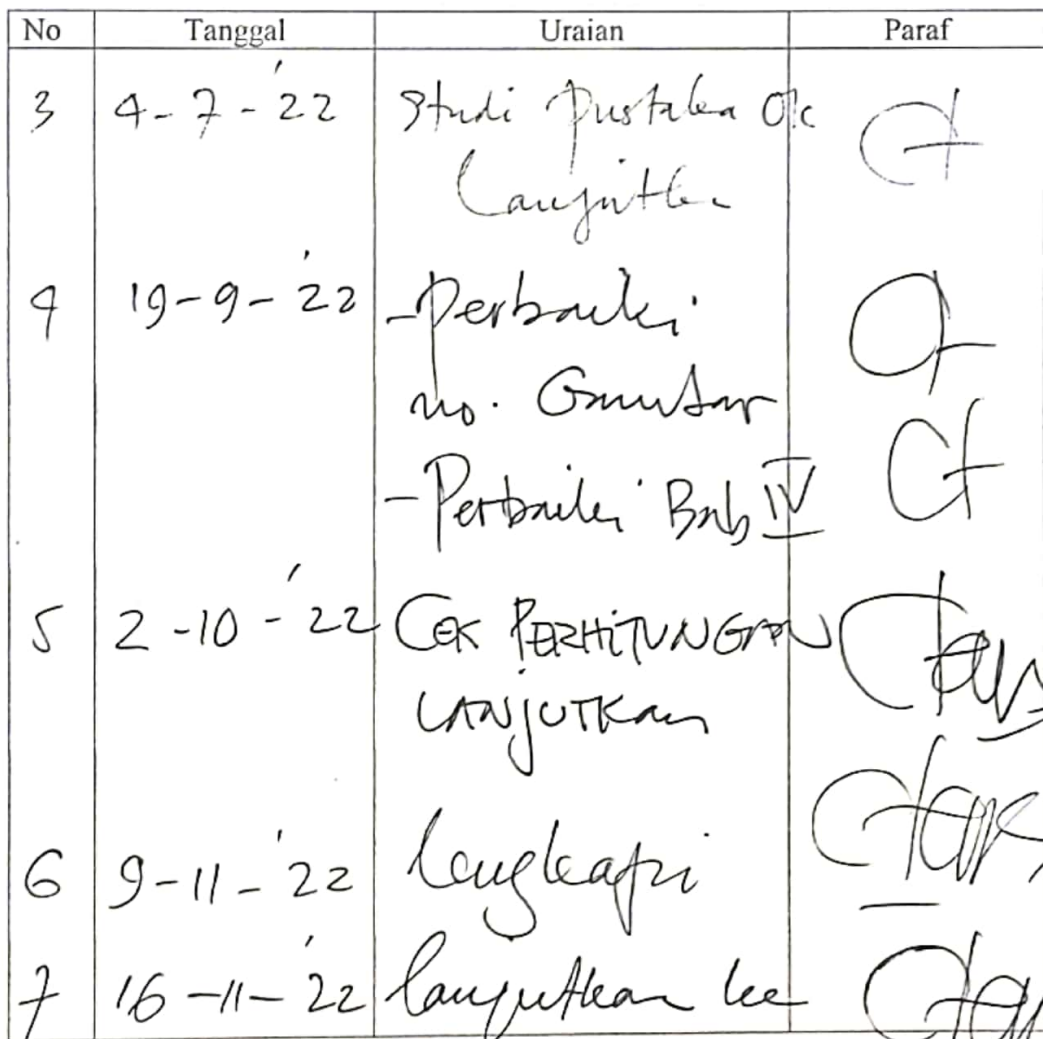 No Tanggal Uraian Paraf
3 4-7-'22 Studi Pustaka Ok
Lanjutkan
4 19-9-'22 -Perbaiki
no. Gambar
-Perbaiki Bab IV
5 2-10-'22 CEK PERHITUNGAN
LANJUTKan
6 9-11-'22 lengkapi
7 16-11-'22 lanjutkan ke